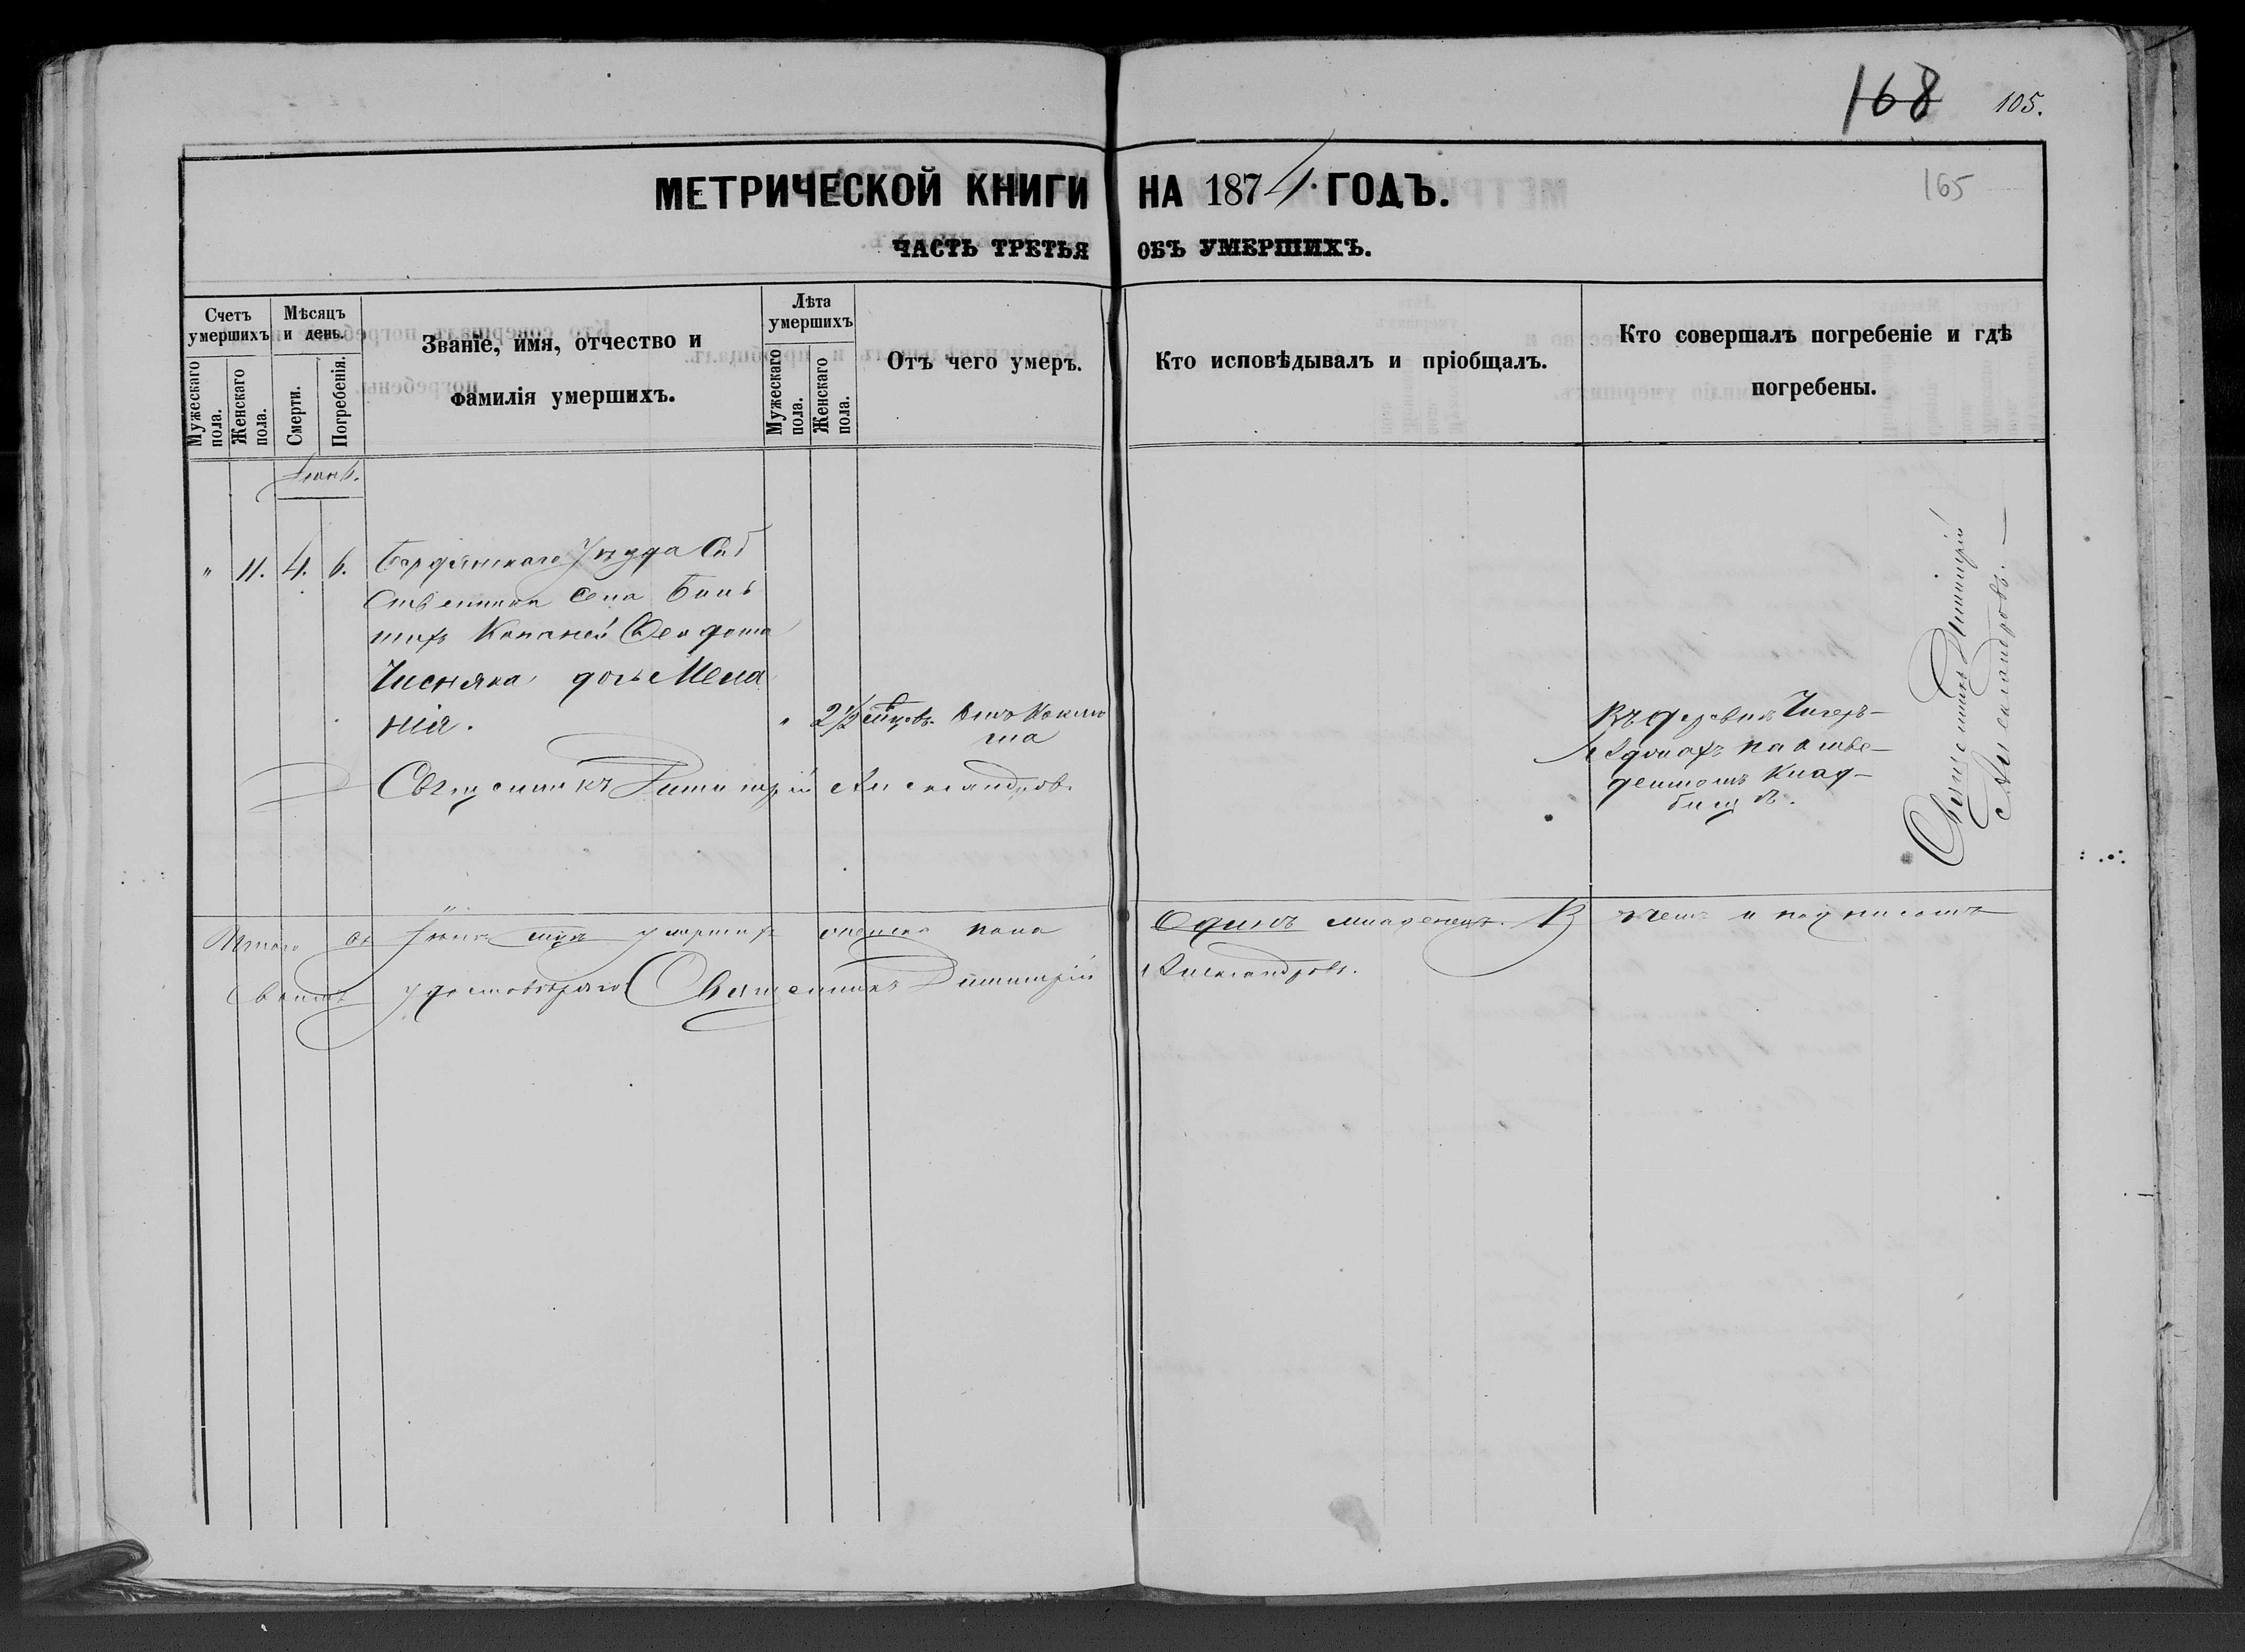 168 105.
165
МЕТРИЧЕСКОЙ КНИГИ НА 1874 ГОДЪ.
ЧАСТЬ ТРЕТЬЯ ОБЪ УМЕРШИХЪ.
Счетъ умершихъ
Мужескаго пола.
Женскаго пола.
Мѣсяцъ и день.
Смерти.
Погребенія.
Званіе, имя, отчество и фамилія умершихъ.
Лѣта умершихъ
Мужескаго пола.
Женскаго пола.
Отъ чего умеръ.
Кто исповѣдывалъ и пріобщалъ.
Кто совершалъ погребеніе и гдѣ погребены.
" 11. 4. 6. Бердянскаго Уѣзда Соб
ственника села Боль
шихъ Копаней Ѳеодота
Чисняка дочь Мела
нія. " 2½ мѣсяцовъ Отъ Коклю
ша
Священникъ Димитрій Александровъ.
Въ деревнѣ
на отве-
денномъ клад-
бищѣ.
Священникъ Димитрій
Александровъ.
Итого въ Іюнѣ умершихъ женска пола Одинъ младенецъ. В чемъ и подписомъ
своимъ удостовѣряю Священникъ Димитрій Александровъ.